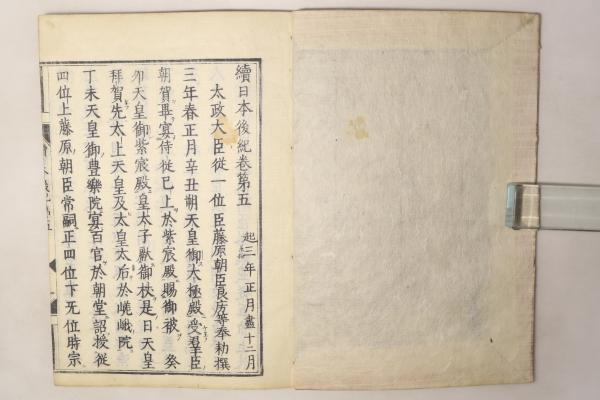 續日本後紀卷第五 起三年正月盡十二月
太政大臣從一位臣藤原朝臣良房等奉勅撰
三年春正月辛丑朔天皇御大極殿受羣臣
朝賀畢宴侍從已上於紫宸殿賜御被 癸
卯天皇御紫宸殿皇太子獻御杖是日天皇
拜賀先太上天皇及太皇太后於嵯峨院
丁未天皇御豊樂院宴百官於朝堂詔授從
四位上藤原朝臣常嗣正四位下无位時宗